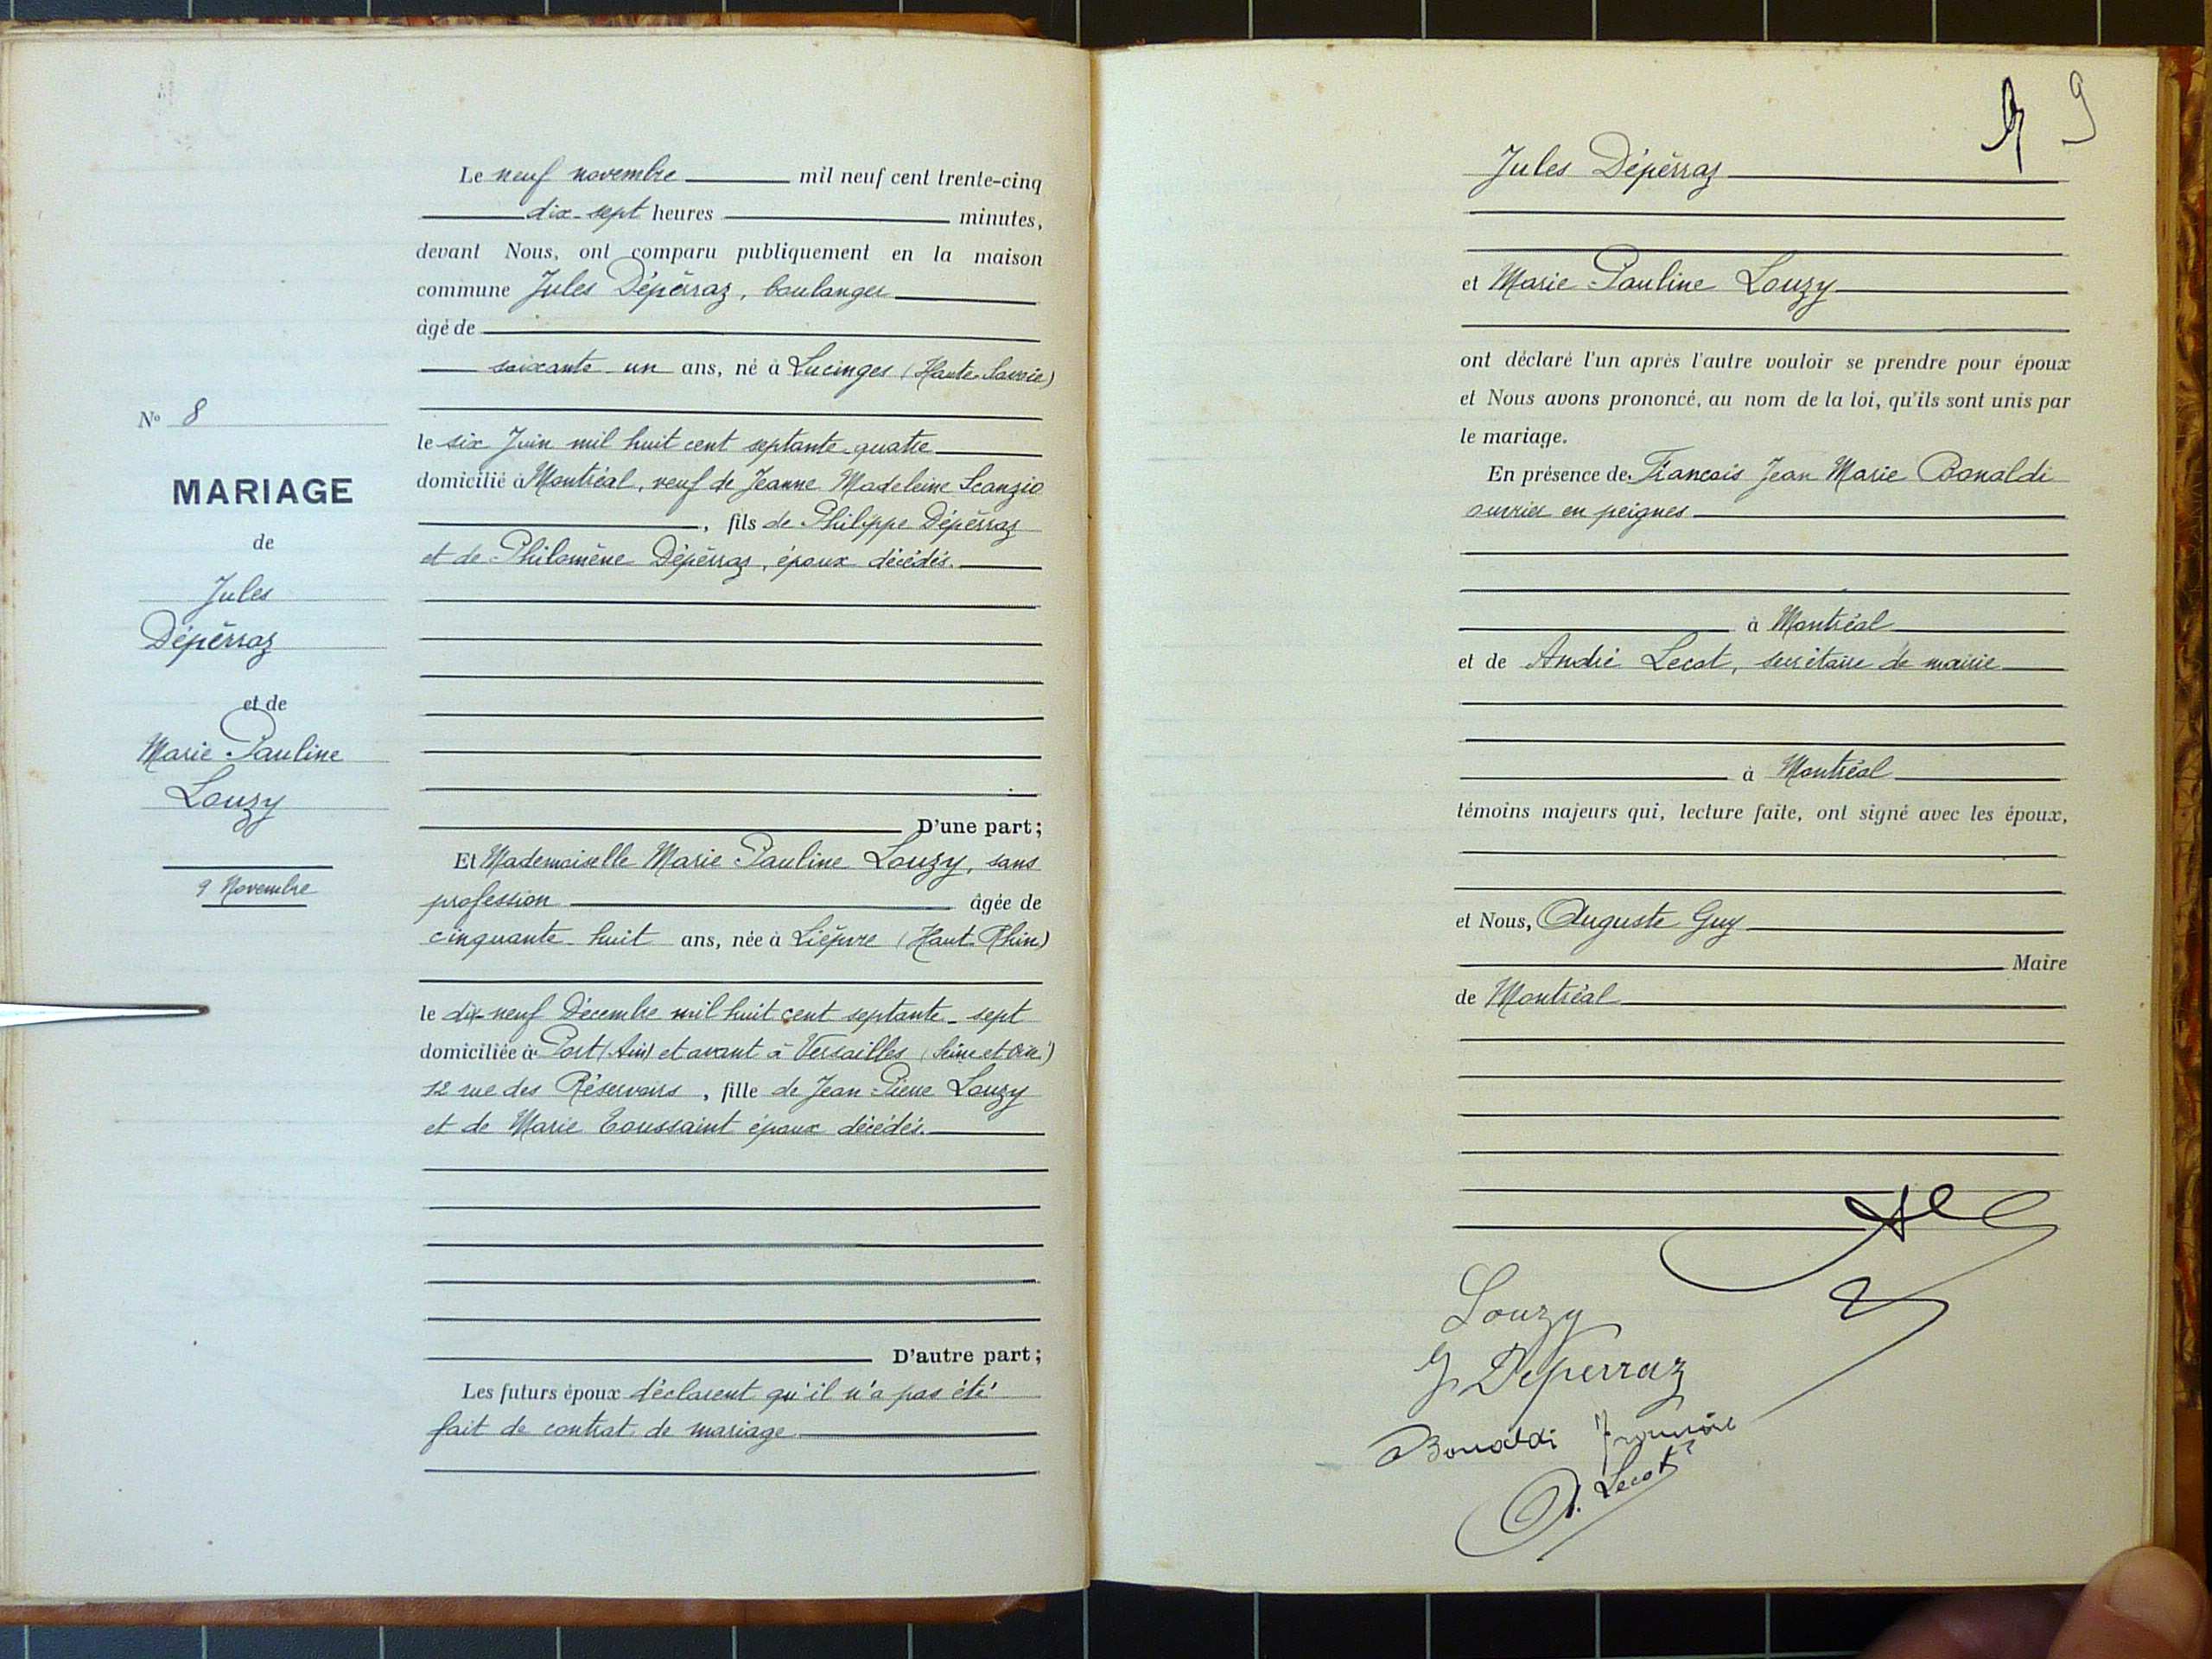 Le neuf novembre mil neuf cent trente-cinq
dix-sept heures minutes,
devant Nous, ont comparu publiquement en la maison
commune Jules Dépêrraz, boulanger
âgé de
soixante-un ans, né à Lucinges (Haute-Savoie)
le six Juin mil huit cent septante-quatre
domicilié à Montréal, veuf de Jeanne Madeleine Scanzio
, fils de Philippe Dépêrraz
et de Philomène Dépêrraz, époux décédés.
D'une part;
Et Mademoiselle Marie-Pauline Louzy, sans
profession âgée de
cinquante-huit ans, née à Lièpvre (Haut-Rhin)
le dix-neuf Décembre mil huit cent septante-sept
domiciliée à Port (Ain) et avant à Versailles (Seine et Oise)
12 rue des Réservoirs, fille de Jean-Pierre Louzy
et de Marie Toussaint époux décédés.
D'autre part;
Les futurs époux déclarent qu'il n'a pas été
fait de contrat de mariage
No 8
MARIAGE
de
Jules
Dépêrraz
et de
Marie-Pauline
Louzy
9 Novembre
9
Jules Dépêrraz
et Marie-Pauline Louzy
ont déclaré l'un après l'autre vouloir se prendre pour époux
et Nous avons prononcé, au nom de la loi, qu'ils sont unis par
le mariage.
En présence de Francois Jean Marie Bonaldi
ouvrier en peignes
à Montréal
et de André Lecot, secrétaire de mairie
à Montréal
témoins majeurs qui, lecture faite, ont signé avec les époux,
et Nous, Auguste Guy
Maire
de Montréal
Louzy
J Deperraz
Bonaldi François
A. Lecot